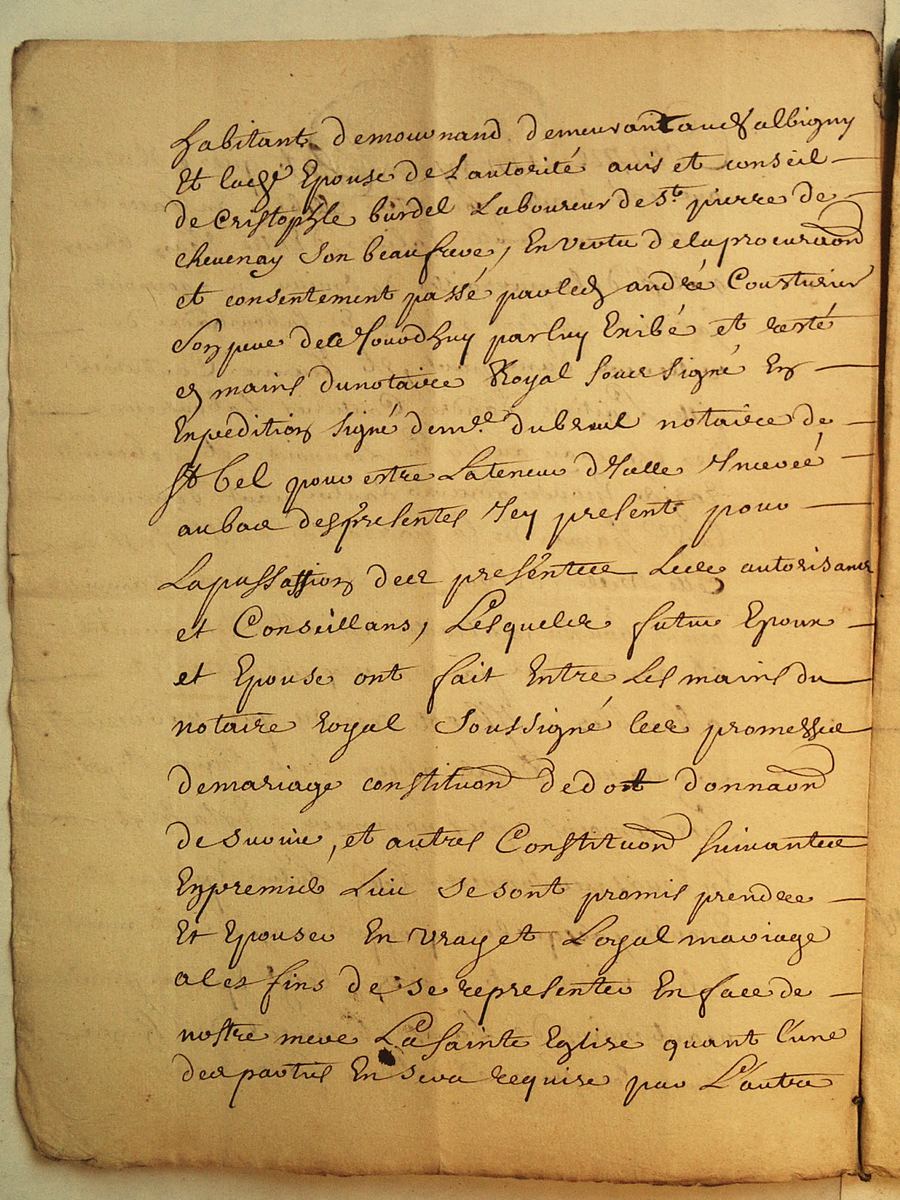 habitant demournand demeurant aud albigny
Et lade Epouse de L'autorité avis et conseil
de Cristophle burdel Laboureur de St pierre de
chevenay Son beaufrere, En vertu de la procuraõn
et consentement passé par led andré Cousturier
Son pere de ce Jourdhuy par luy Exibé et resté
Es mains dunotaire Royal Soussigné En
Expedition Signé de me dubreuil notaire de
St bel pour estre La teneur d'Icelle Inserée
au bas des presentes Icy present pour
La passation des presentes Lesd autorisans
et Conseillans, Lesquels futur Epoux
et Epouse ont fait Entre Les mains du
notaire royal Soussigné les promesses
demariage constituõn dedot donnaõn
de survie, et autres Constituõn suivantes
En premier Lieu se sont promis prendre
Et Epouser En vray et Loyal mariage
a les fins de se representer En face de
nostre mere La Sainte Eglise quant l'une
des parties En sera requise par L'autre